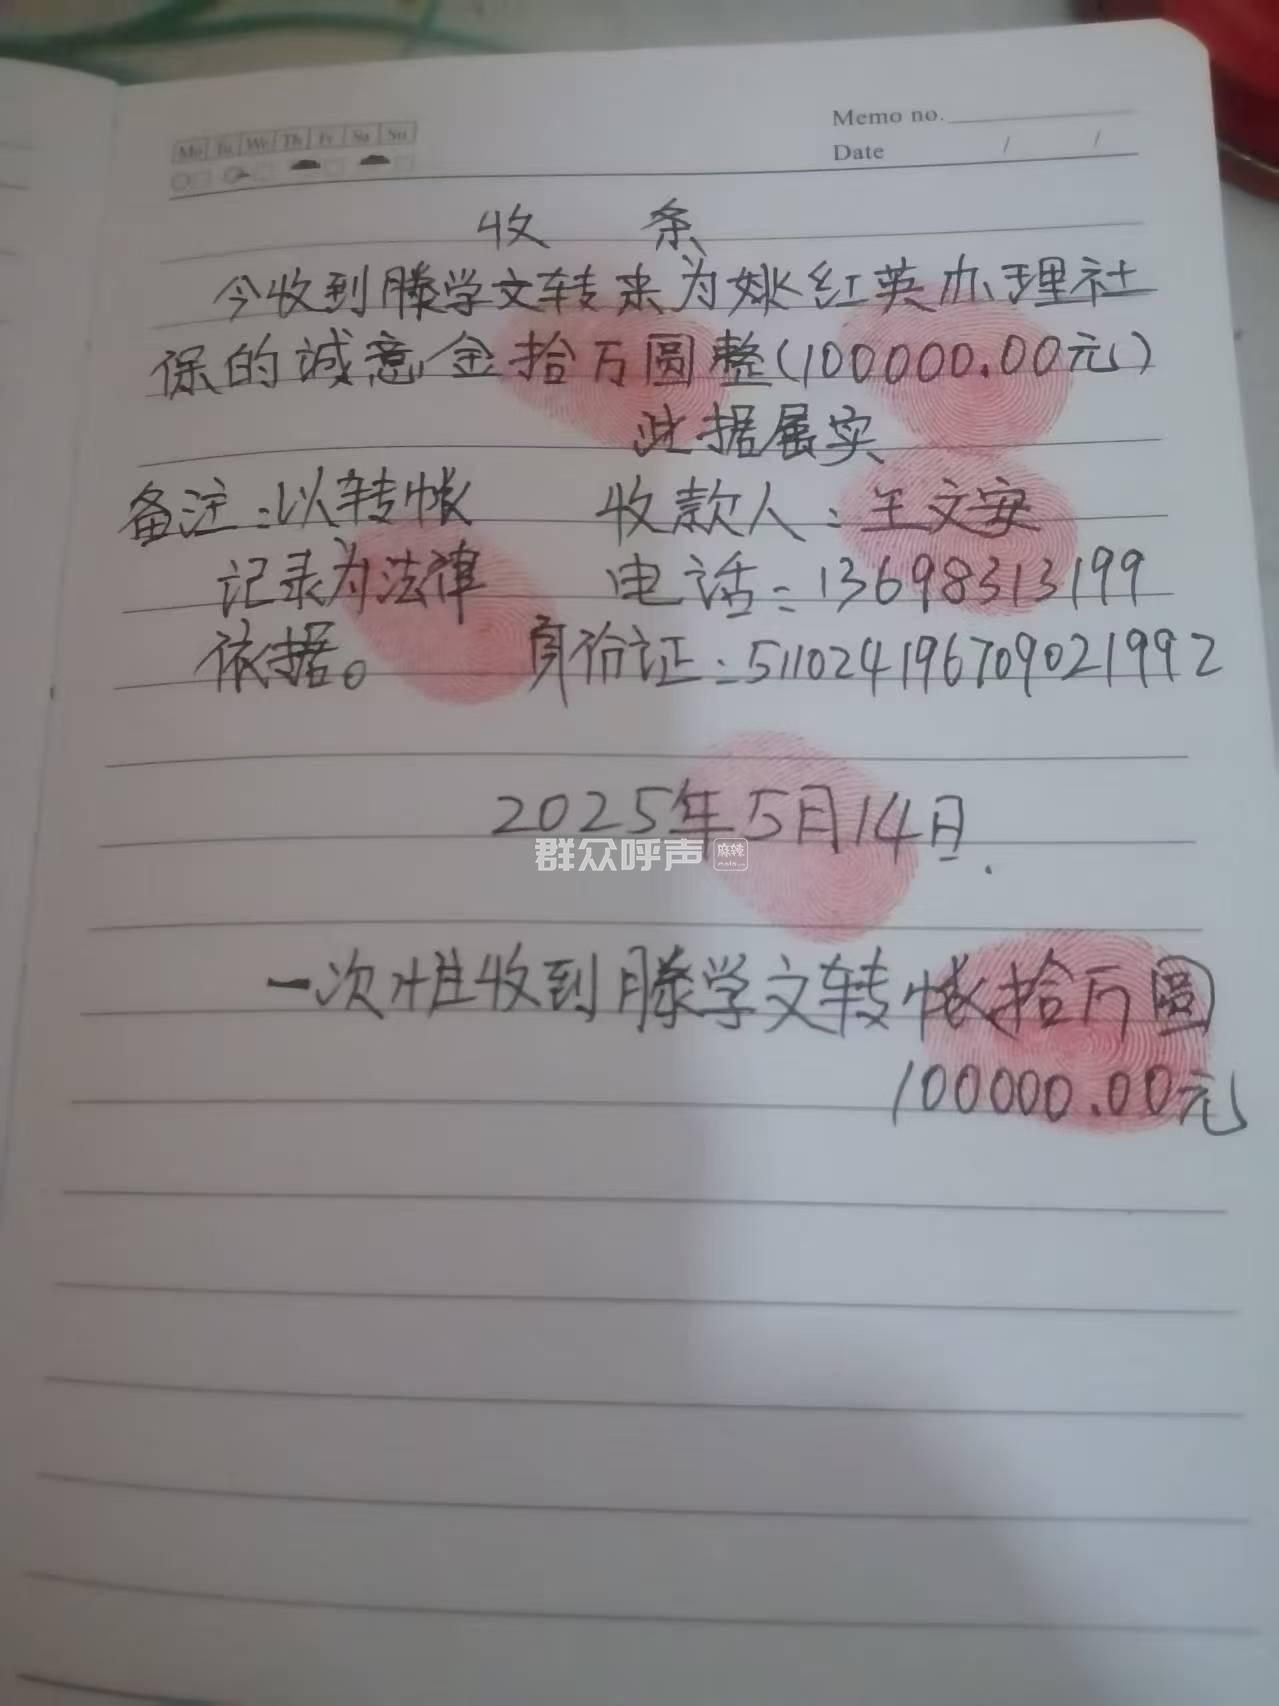 Mo Tu We Th Fr Sa Su
Memo no.
Date / /
收 条
今收到滕学文转来为姚红英办理社
保的诚意金拾万圆整(100000.00元)
此据属实
备注:以转帐 收款人:王文安
记录为法律 电话:13698313199
依据。 身份证:511024196709021992
2025年5月14日.
群众呼声 麻辣
一次性收到滕学文转帐拾万圆
100000.00元